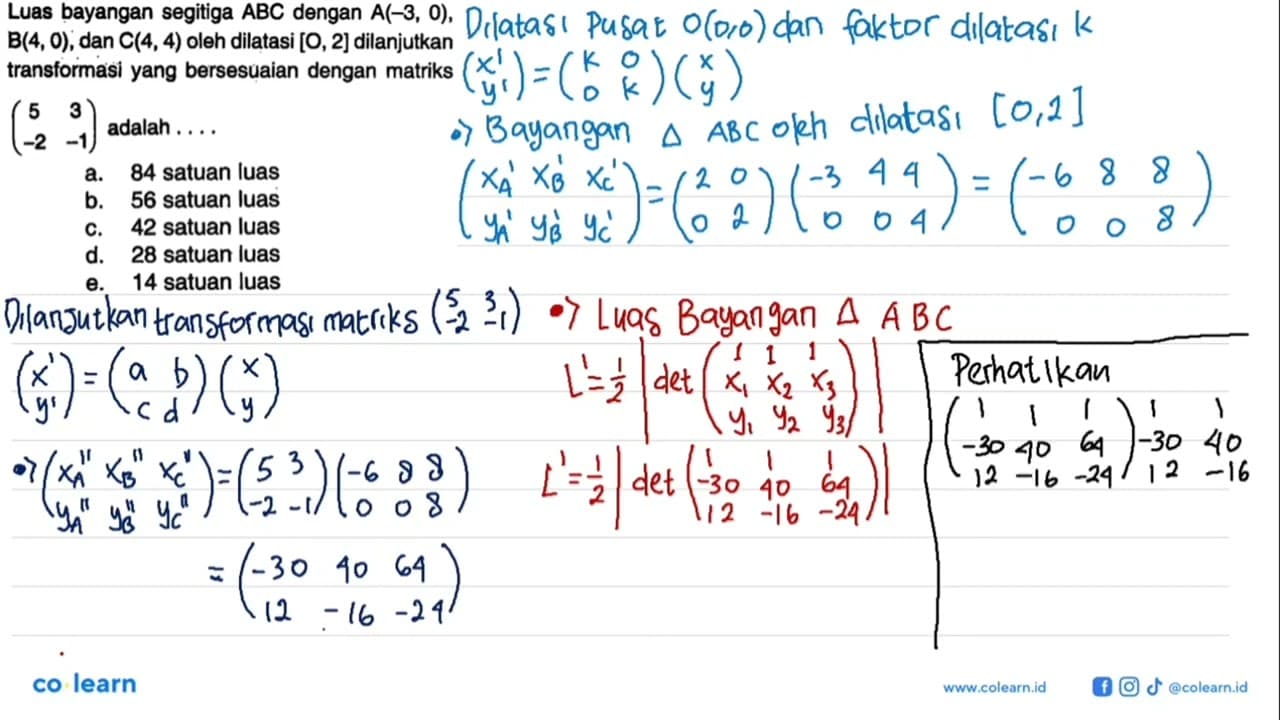 Luas bayangan segitiga ABC dengan A(–3, 0),
B(4, 0), dan C(4, 4) oleh dilatasi [O, 2] dilanjutkan
transformasi yang bersesuaian dengan matriks
(5 3
-2 -1) adalah . . . .
a. 84 satuan luas
b. 56 satuan luas
c. 42 satuan luas
d. 28 satuan luas
e. 14 satuan luas
Dilatasi Pusat O(0,0) dan faktor dilatasi k
(x' y') = (k 0
0 k) (x y)
•> Bayangan Δ ABC oleh dilatasi [0,2]
(xA' xB' xC'
yA' yB' yC') = (2 0
0 2) (-3 4 4
0 0 4) = (-6 8 8
0 0 8)
Dilanjutkan transformasi matriks (5 3
-2 -1)
(x' y') = (a b
c d) (x y)
•> (xA" xB" xC"
yA" yB" yC") = (5 3
-2 -1) (-6 8 8
0 0 8)
= (-30 40 64
12 -16 -24)
•> Luas Bayangan Δ ABC
L' = 1/2 |det (1 1 1
x1 x2 x3
y1 y2 y3)|
L' = 1/2 |det (1 1 1
-30 40 64
12 -16 -24)|
Perhatikan
(1 1 1) 1 1
-30 40 64 -30 40
12 -16 -24 12 -16
co learn
www.colearn.id
@colearn.id